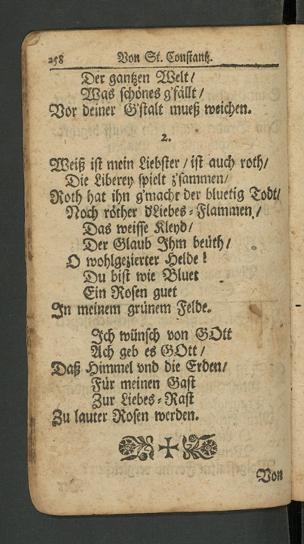 258 Von St. Constantz.
Der gantzen Welt/
Was schönes g'fällt/
Vor deiner G'stalt mueß weichen.
2.
Weiß ist mein Liebster/ ist auch roth/
Die Liberey spielt z'sammen/
Roth hat ihn g'macht der bluetig Todt/
Noch röther d'Liebes-Flammen/
Das weisse Kleyd/
Der Glaub Ihm beüth/
O wohlgezierter Helde!
Du bist wie Bluet
Ein Rosen guet
In meinem grünem Felde.
Ich wünsch von GOtt
Ach geb es GOtt/
Daß Himmel vnd die Erden/
Für meinen Gast
Zur Liebes-Rast
Zu lauter Rosen werden.
Von